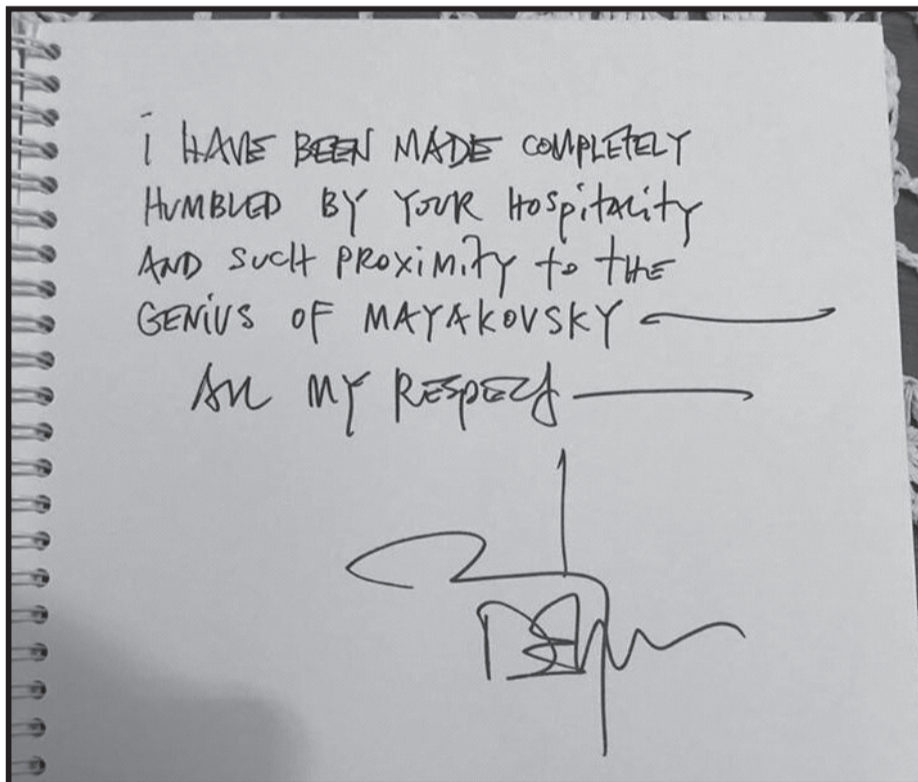 i HAVE BEEN MADE COMPLETELY
HUMBLED BY YOUR HOSPitALity
AND SUCH PROXiMiTY to tHE
GENiUS OF MAYAKOVSKY
All MY RESPECt